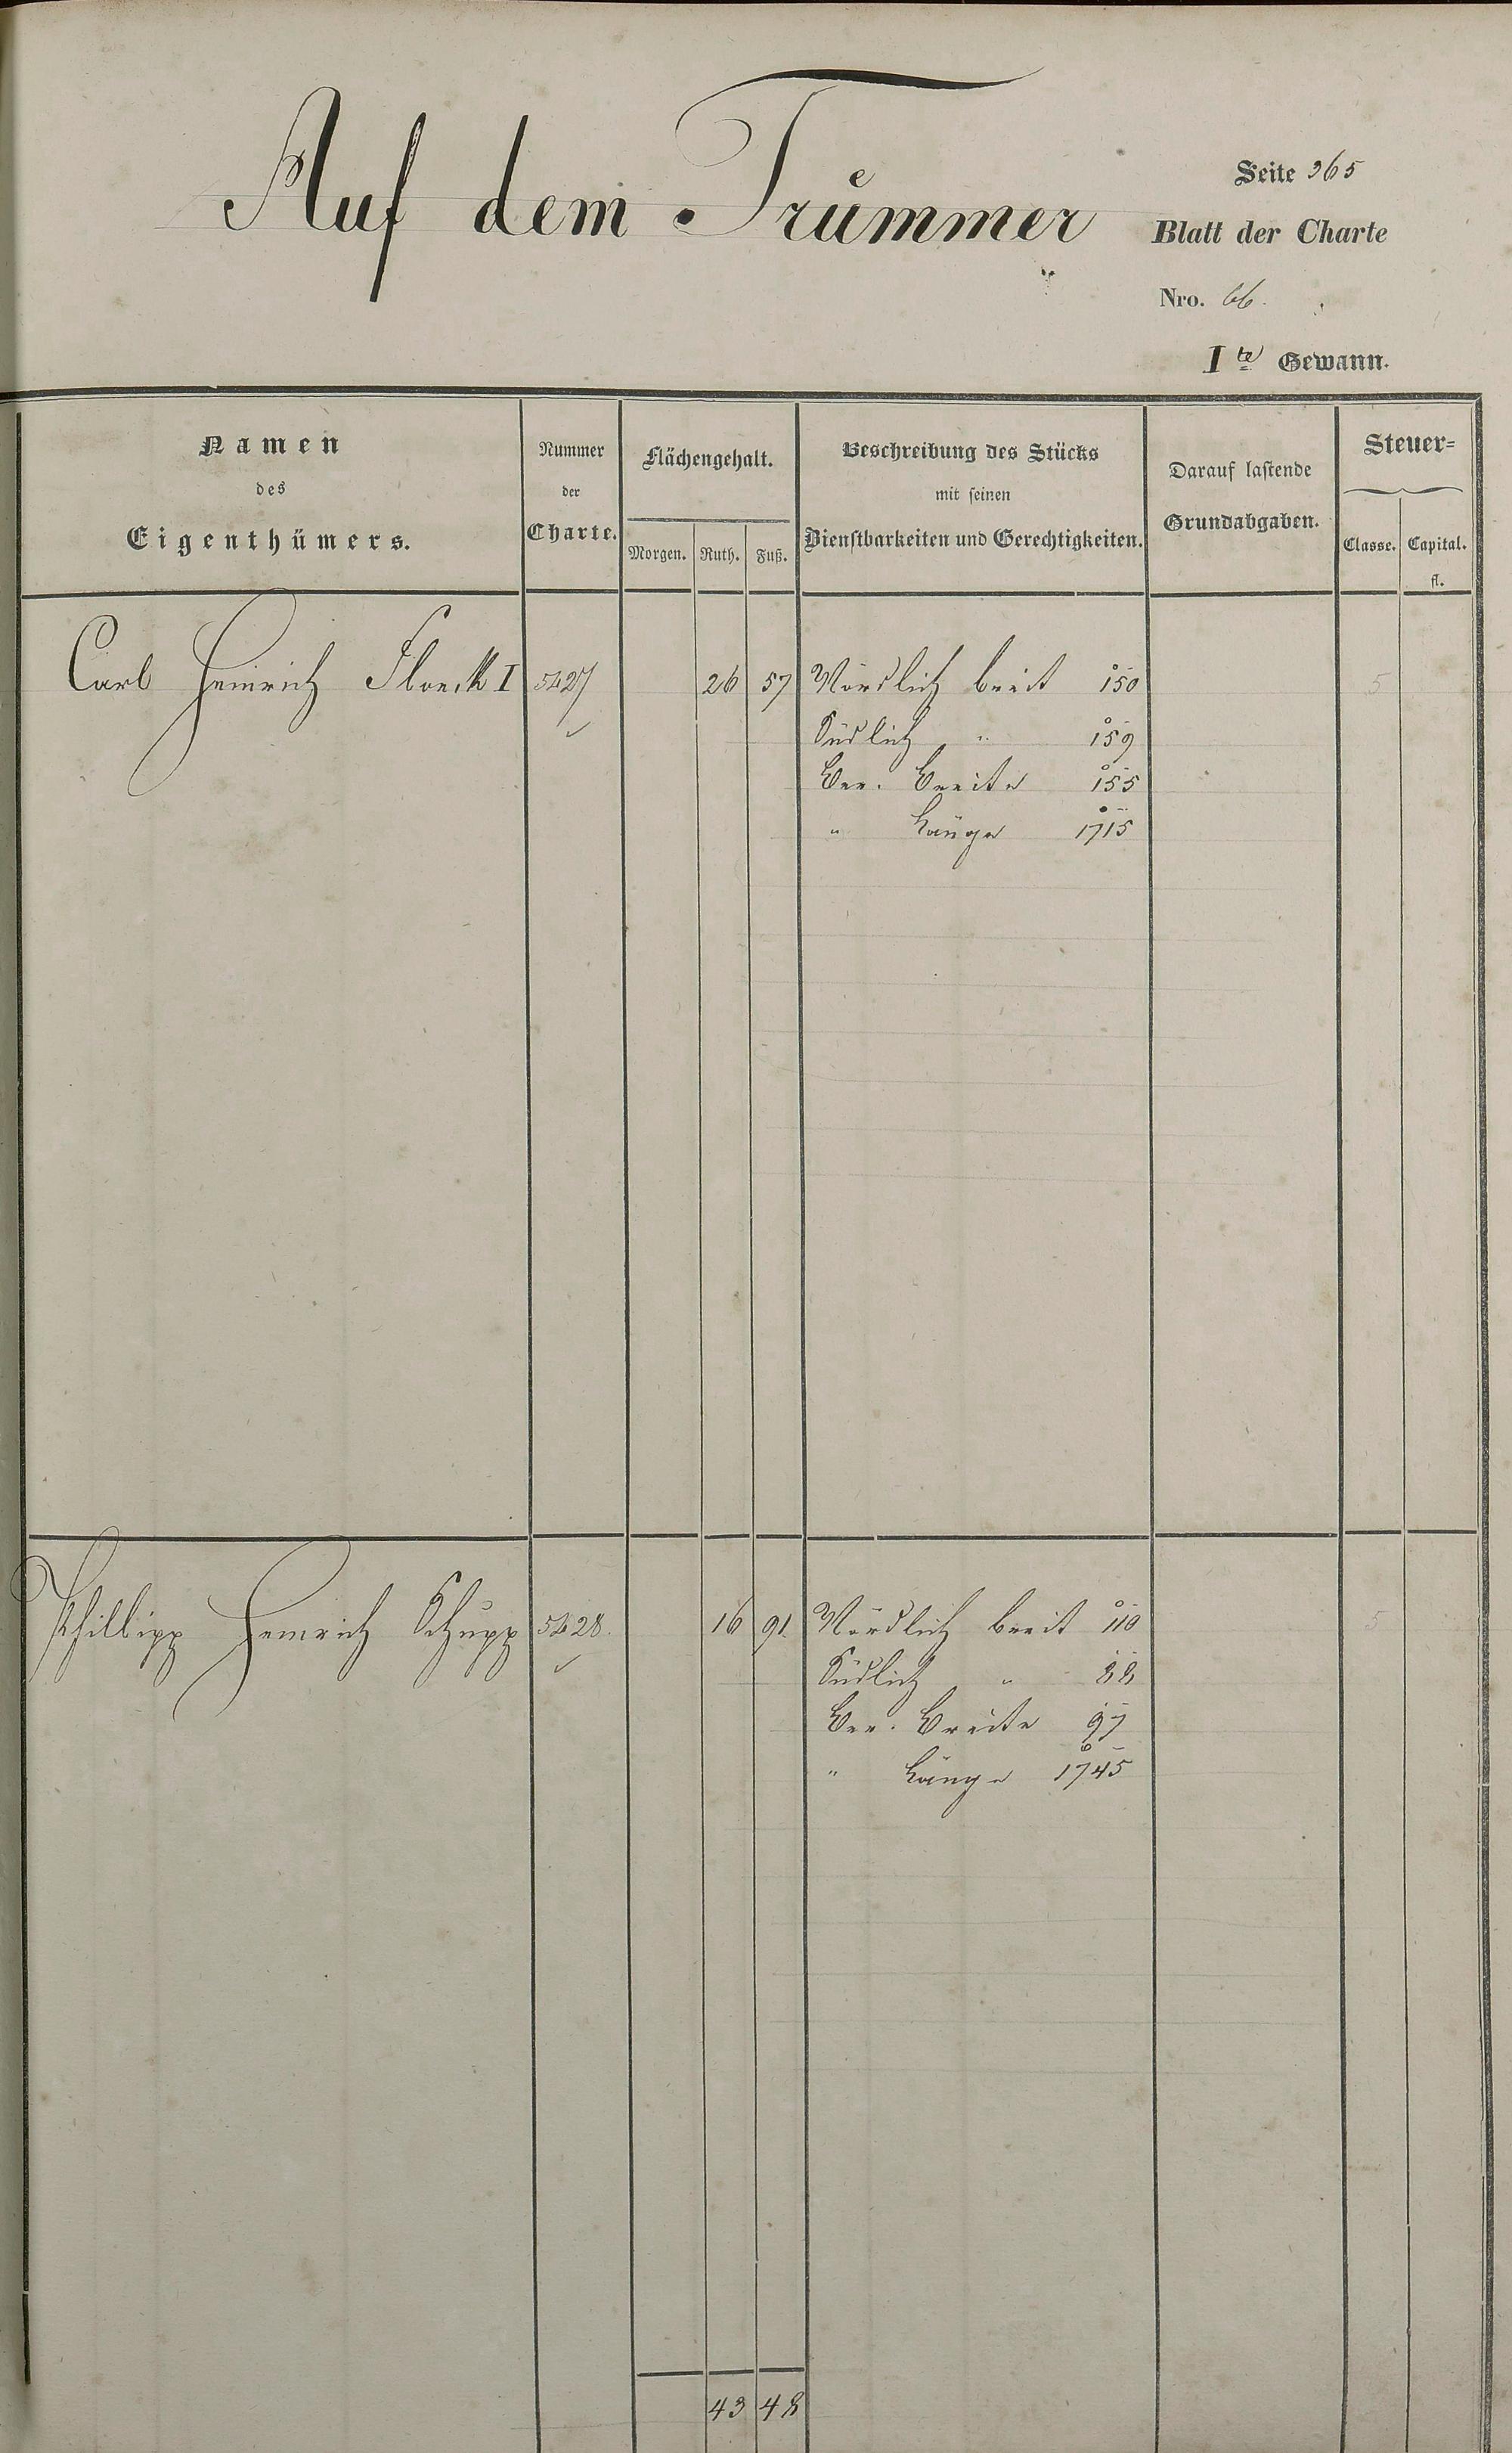 Auf dem Trümmer
Seite 365
Blatt der Charte
Nro. 66.
Ite Gewann.
Namen
des
Eigenthümers.
Nummer
der
Charte.
Flächengehalt.
Morgen. Ruth. Fuß.
Beschreibung des Stücks
mit seinen
Dienstbarkeiten und Gerechtigkeiten.
Darauf lastende
Grundabgaben.
Steuer-
Classe. Capital.
fl.
Carl Heinrich Floeck I 5427 26 57 Nördlich breit 150 5
Südlich " 159
Ber. Breite 155
" Länge 1715
Philipp Heinrich Schupp 5428. 16 91. Nördlich breit 110 5
Südlich " 88
Ber. Breite 97
" Länge 1745
43 48